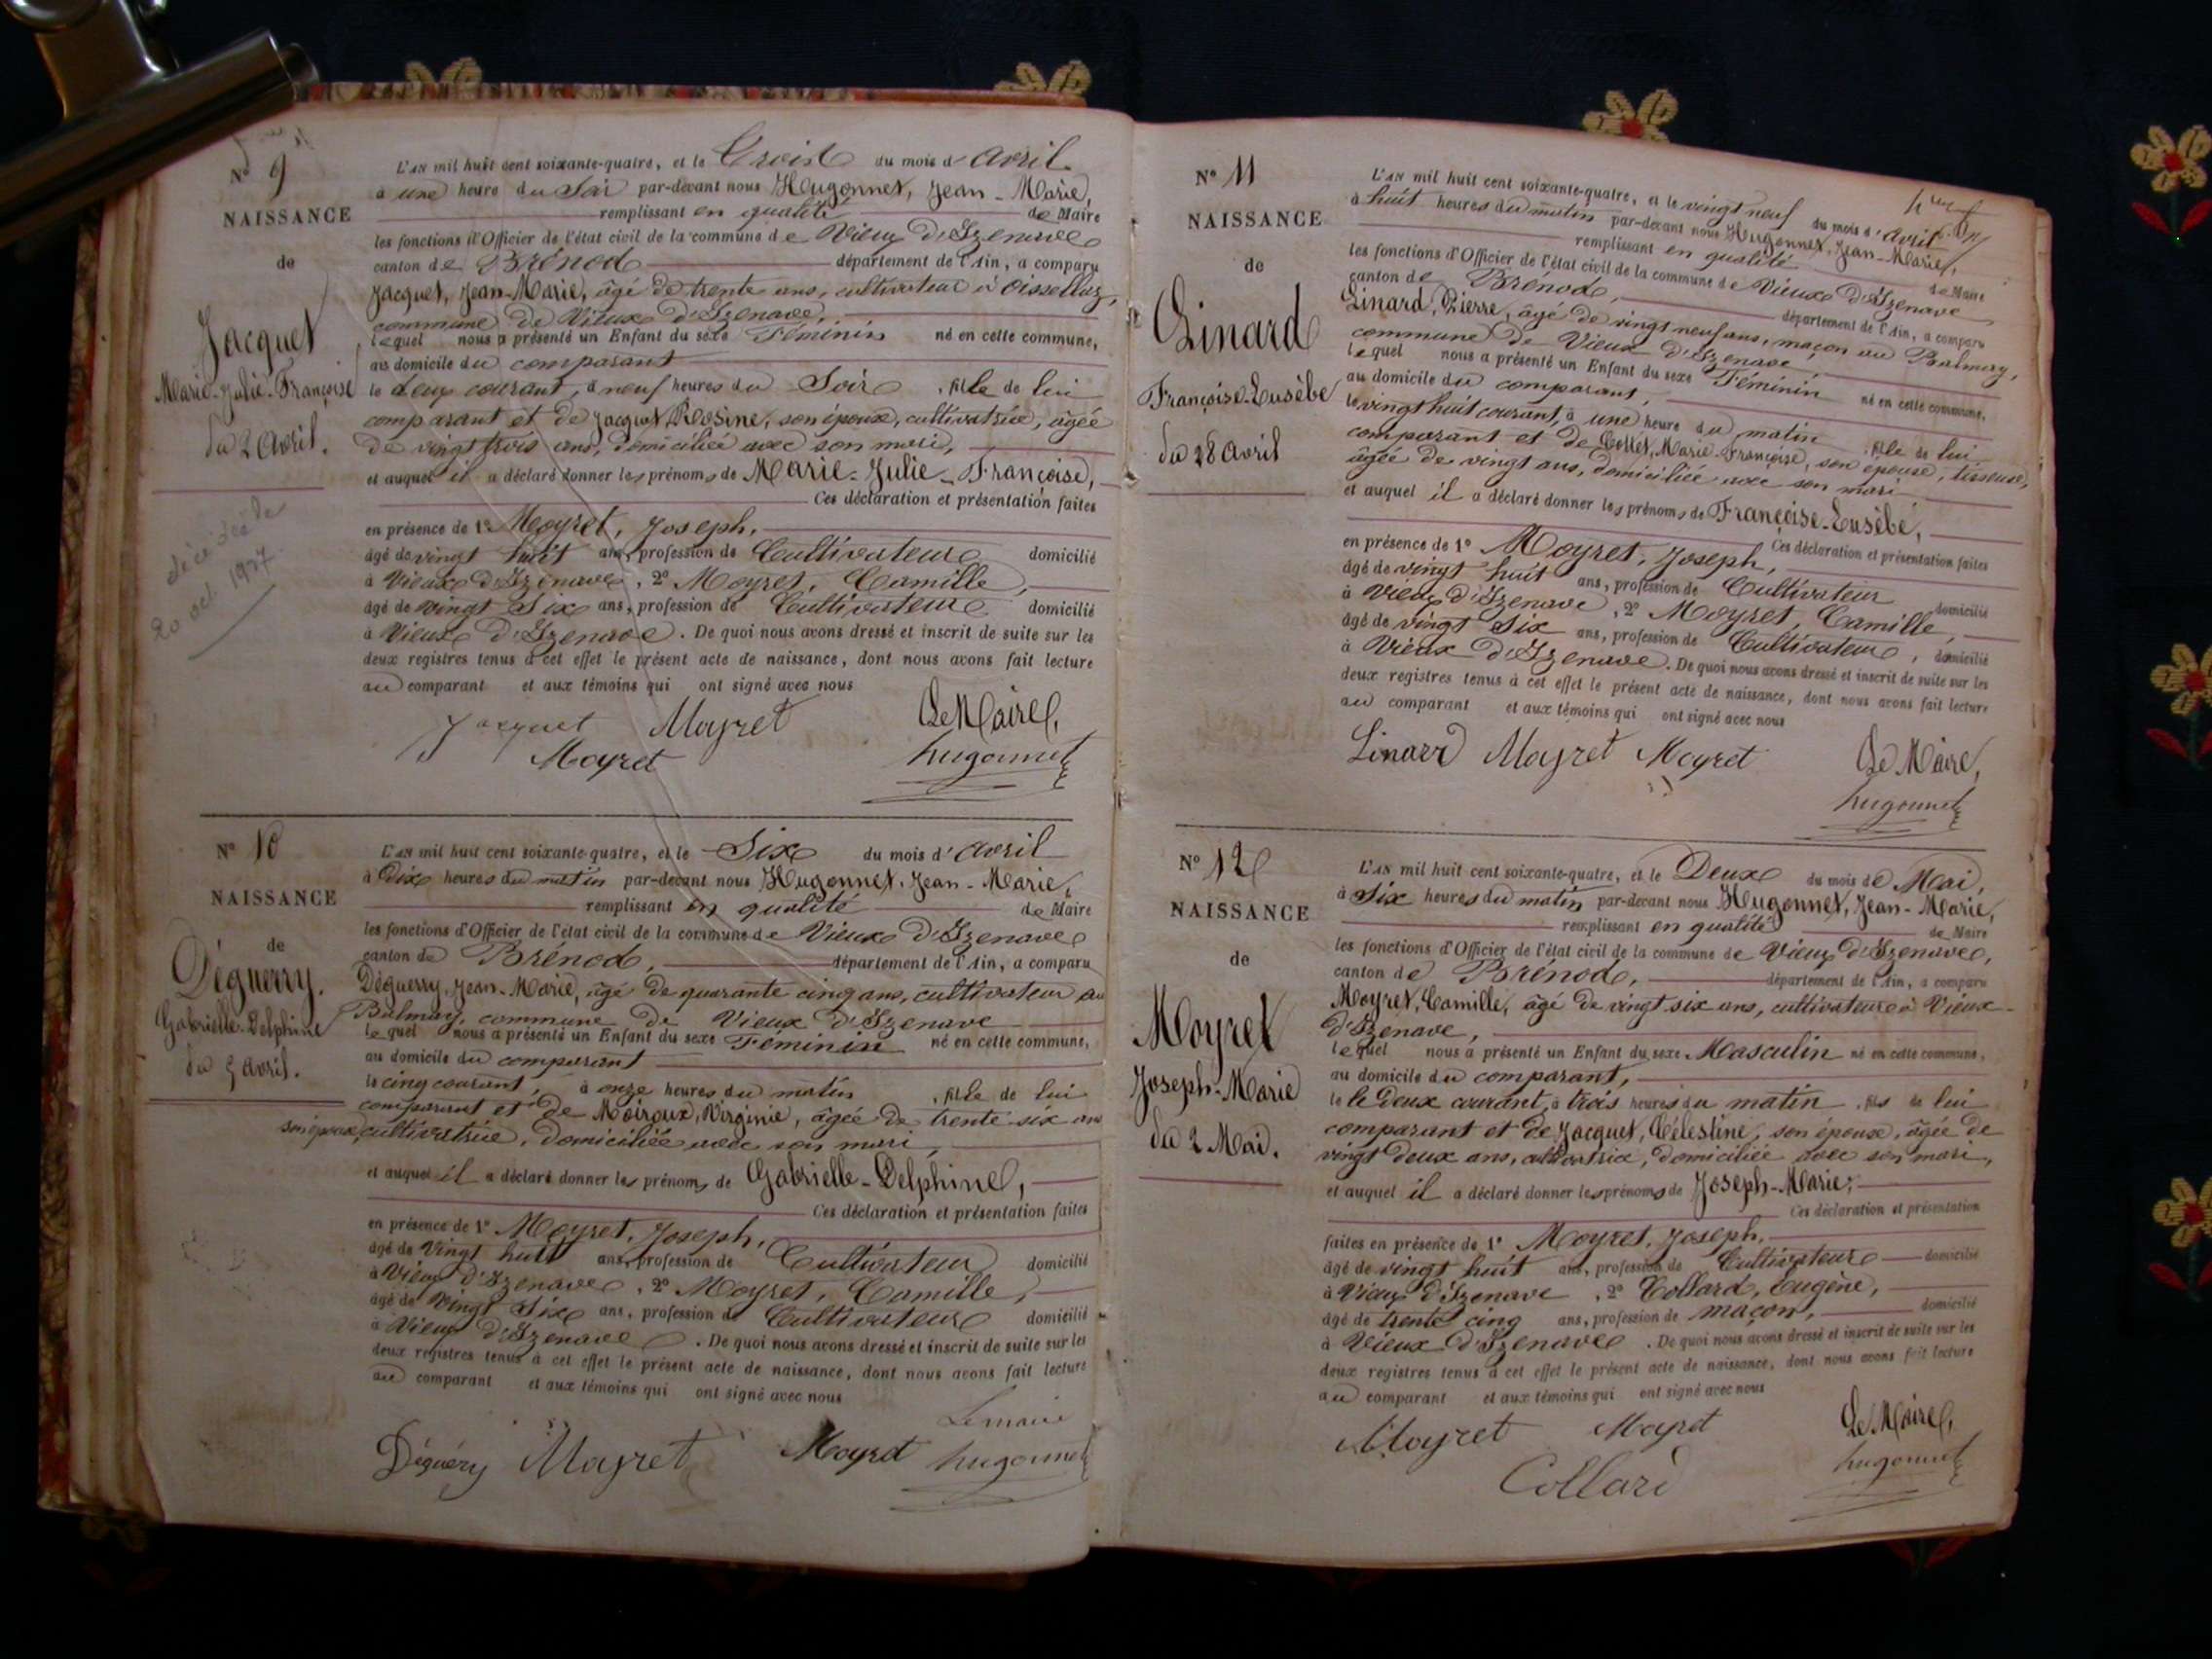 Nº 9
NAISSANCE
de
Jacquet
Marie-Julie-Françoise
du 2 Avril.
décédée le
20 oct. 1937
L'AN mil huit cent soixante-quatre, et le Trois du mois d'Avril
à une heure du Soir par-devant nous Hugonnet, Jean-Marie,
remplissant en qualité de Maire
les fonctions d'Officier de l'état civil de la commune de Vieux d'Izenave
canton de Brénod département de l'Ain, a comparu
Jacquet, Jean-Marie, âgé de trente ans, cultivateur à Oisselaz,
commune de Vieux d'Izenave,
lequel nous a présenté un Enfant du sexe Féminin né en cette commune,
au domicile du comparant
le deux courant, à neuf heures du Soir, fille de lui
comparant et de Jacquet, Rosine, son épouse, cultivatrice, âgée
de vingt trois ans, domiciliée avec son mari,
et auquel il a déclaré donner les prénoms de Marie-Julie-Françoise,
Ces déclaration et présentation faites
en présence de 1º Moyret, Joseph,
âgé de vingt huit ans, profession de Cultivateur domicilié
à Vieux d'Izenave, 2º Moyret, Camille,
âgé de vingt Six ans, profession de Cultivateur domicilié
à Vieux d'Izenave. De quoi nous avons dressé et inscrit de suite sur les
deux registres tenus à cet effet le présent acte de naissance, dont nous avons fait lecture
au comparant et aux témoins qui ont signé avec nous
Jacquet Moyret Le Maire,
Moyret hugonnet
Nº 10
NAISSANCE
de
Déguerry.
Gabrielle-Delphine
du 5 Avril.
L'AN mil huit cent soixante-quatre, et le Six du mois d'Avril
à Dix heures du matin par-devant nous Hugonnet, Jean-Marie,
remplissant en qualité de Maire
les fonctions d'Officier de l'état civil de la commune de Vieux d'Izenave
canton de Brénod, département de l'Ain, a comparu
Déguerry, Jean-Marie, âgé de quarante cinq ans, cultivateur au
Balmay, commune de Vieux d'Izenave
lequel nous a présenté un Enfant du sexe Féminin né en cette commune,
au domicile du comparant
le cinq courant, à onze heures du matin, fille de lui
comparant et de Moiroux, Virginie, âgée de trente six ans
son épouse, cultivatrice, domiciliée avec son mari,
et auquel il a déclaré donner les prénoms de Gabrielle-Delphine,
Ces déclaration et présentation faites
en présence de 1º Moyret, Joseph,
âgé de Vingt huit ans, profession de Cultivateur domicilié
à Vieux d'Izenave, 2º Moyret, Camille,
âgé de Vingt Six ans, profession de Cultivateur domicilié
à Vieux d'Izenave. De quoi nous avons dressé et inscrit de suite sur les
deux registres tenus à cet effet le présent acte de naissance, dont nous avons fait lecture
au comparant et aux témoins qui ont signé avec nous
Le maire
Déguéry Moyret Moyret hugonnet
Nº 11
NAISSANCE
de
Linard
Françoise-Eusèbe
du 28 Avril
L'AN mil huit cent soixante-quatre, et le vingt neuf du mois d'Avril
à huit heures du matin par-devant nous Hugonnet, Jean-Marie,
remplissant en qualité de Maire
les fonctions d'Officier de l'état civil de la commune de Vieux d'Izenave
canton de Brénod, département de l'Ain, a comparu
Linard, Pierre, âgé de vingt neuf ans, maçon au Balmay,
commune de Vieux d'Izenave,
lequel nous a présenté un Enfant du sexe Féminin né en cette commune,
au domicile du comparant,
le vingt huit courant, à une heure du matin, fille de lui
comparant et de Collet, Marie-Françoise, son épouse, tisseuse,
âgée de vingt ans, domiciliée avec son mari
et auquel il a déclaré donner les prénoms de Françoise-Eusèbe,
Ces déclaration et présentation faites
en présence de 1º Moyret, Joseph,
âgé de vingt huit ans, profession de Cultivateur domicilié
à Vieux d'Izenave, 2º Moyret, Camille,
âgé de vingt Six ans, profession de Cultivateur, domicilié
à Vieux d'Izenave. De quoi nous avons dressé et inscrit de suite sur les
deux registres tenus à cet effet le présent acte de naissance, dont nous avons fait lecture
au comparant et aux témoins qui ont signé avec nous
Linard Moyret Moyret Le Maire,
hugonnet
Nº 12
NAISSANCE
de
Moyret
Joseph-Marie
du 2 Mai.
L'AN mil huit cent soixante-quatre, et le Deux du mois de Mai,
à Six heures du matin par-devant nous Hugonnet, Jean-Marie,
remplissant en qualité de Maire
les fonctions d'Officier de l'état civil de la commune de Vieux d'Izenave,
canton de Brénod, département de l'Ain, a comparu
Moyret, Camille, âgé de vingt six ans, cultivateur à Vieux-
d'Izenave,
lequel nous a présenté un Enfant du sexe Masculin né en cette commune,
au domicile du comparant,
le le Deux courant, à trois heures du matin, fils de lui
comparant et de Jacquet, Célestine, son épouse, âgée de
vingt deux ans, cultivatrice, domiciliée avec son mari,
et auquel il a déclaré donner les prénoms de Joseph-Marie,
Ces déclaration et présentation
faites en présence de 1º Moyret, Joseph,
âgé de vingt huit ans, profession de Cultivateur domicilié
à Vieux d'Izenave, 2º Collard, Eugène,
âgé de trente cinq ans, profession de maçon, domicilié
à Vieux d'Izenave. De quoi nous avons dressé et inscrit de suite sur les
deux registres tenus à cet effet le présent acte de naissance, dont nous avons fait lecture
au comparant et aux témoins qui ont signé avec nous
Moyret Moyret Le Maire,
Collard hugonnet